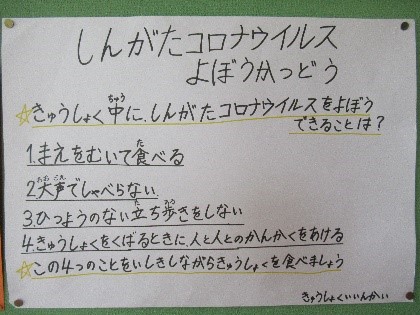 しんがたコロナウイルス
よぼうかつどう
☆きゅうしょく中に、しんがたコロナウイルスをよぼう
できることは?
1.まえをむいて食べる
2.大声でしゃべらない
3.ひつようのない立ち歩きをしない
4.きゅうしょくをくばるときに人と人とのかんかくをあける
☆この4つのことをいしきしながらきゅうしょくを食べましょう
きゅうしょくいいんかい